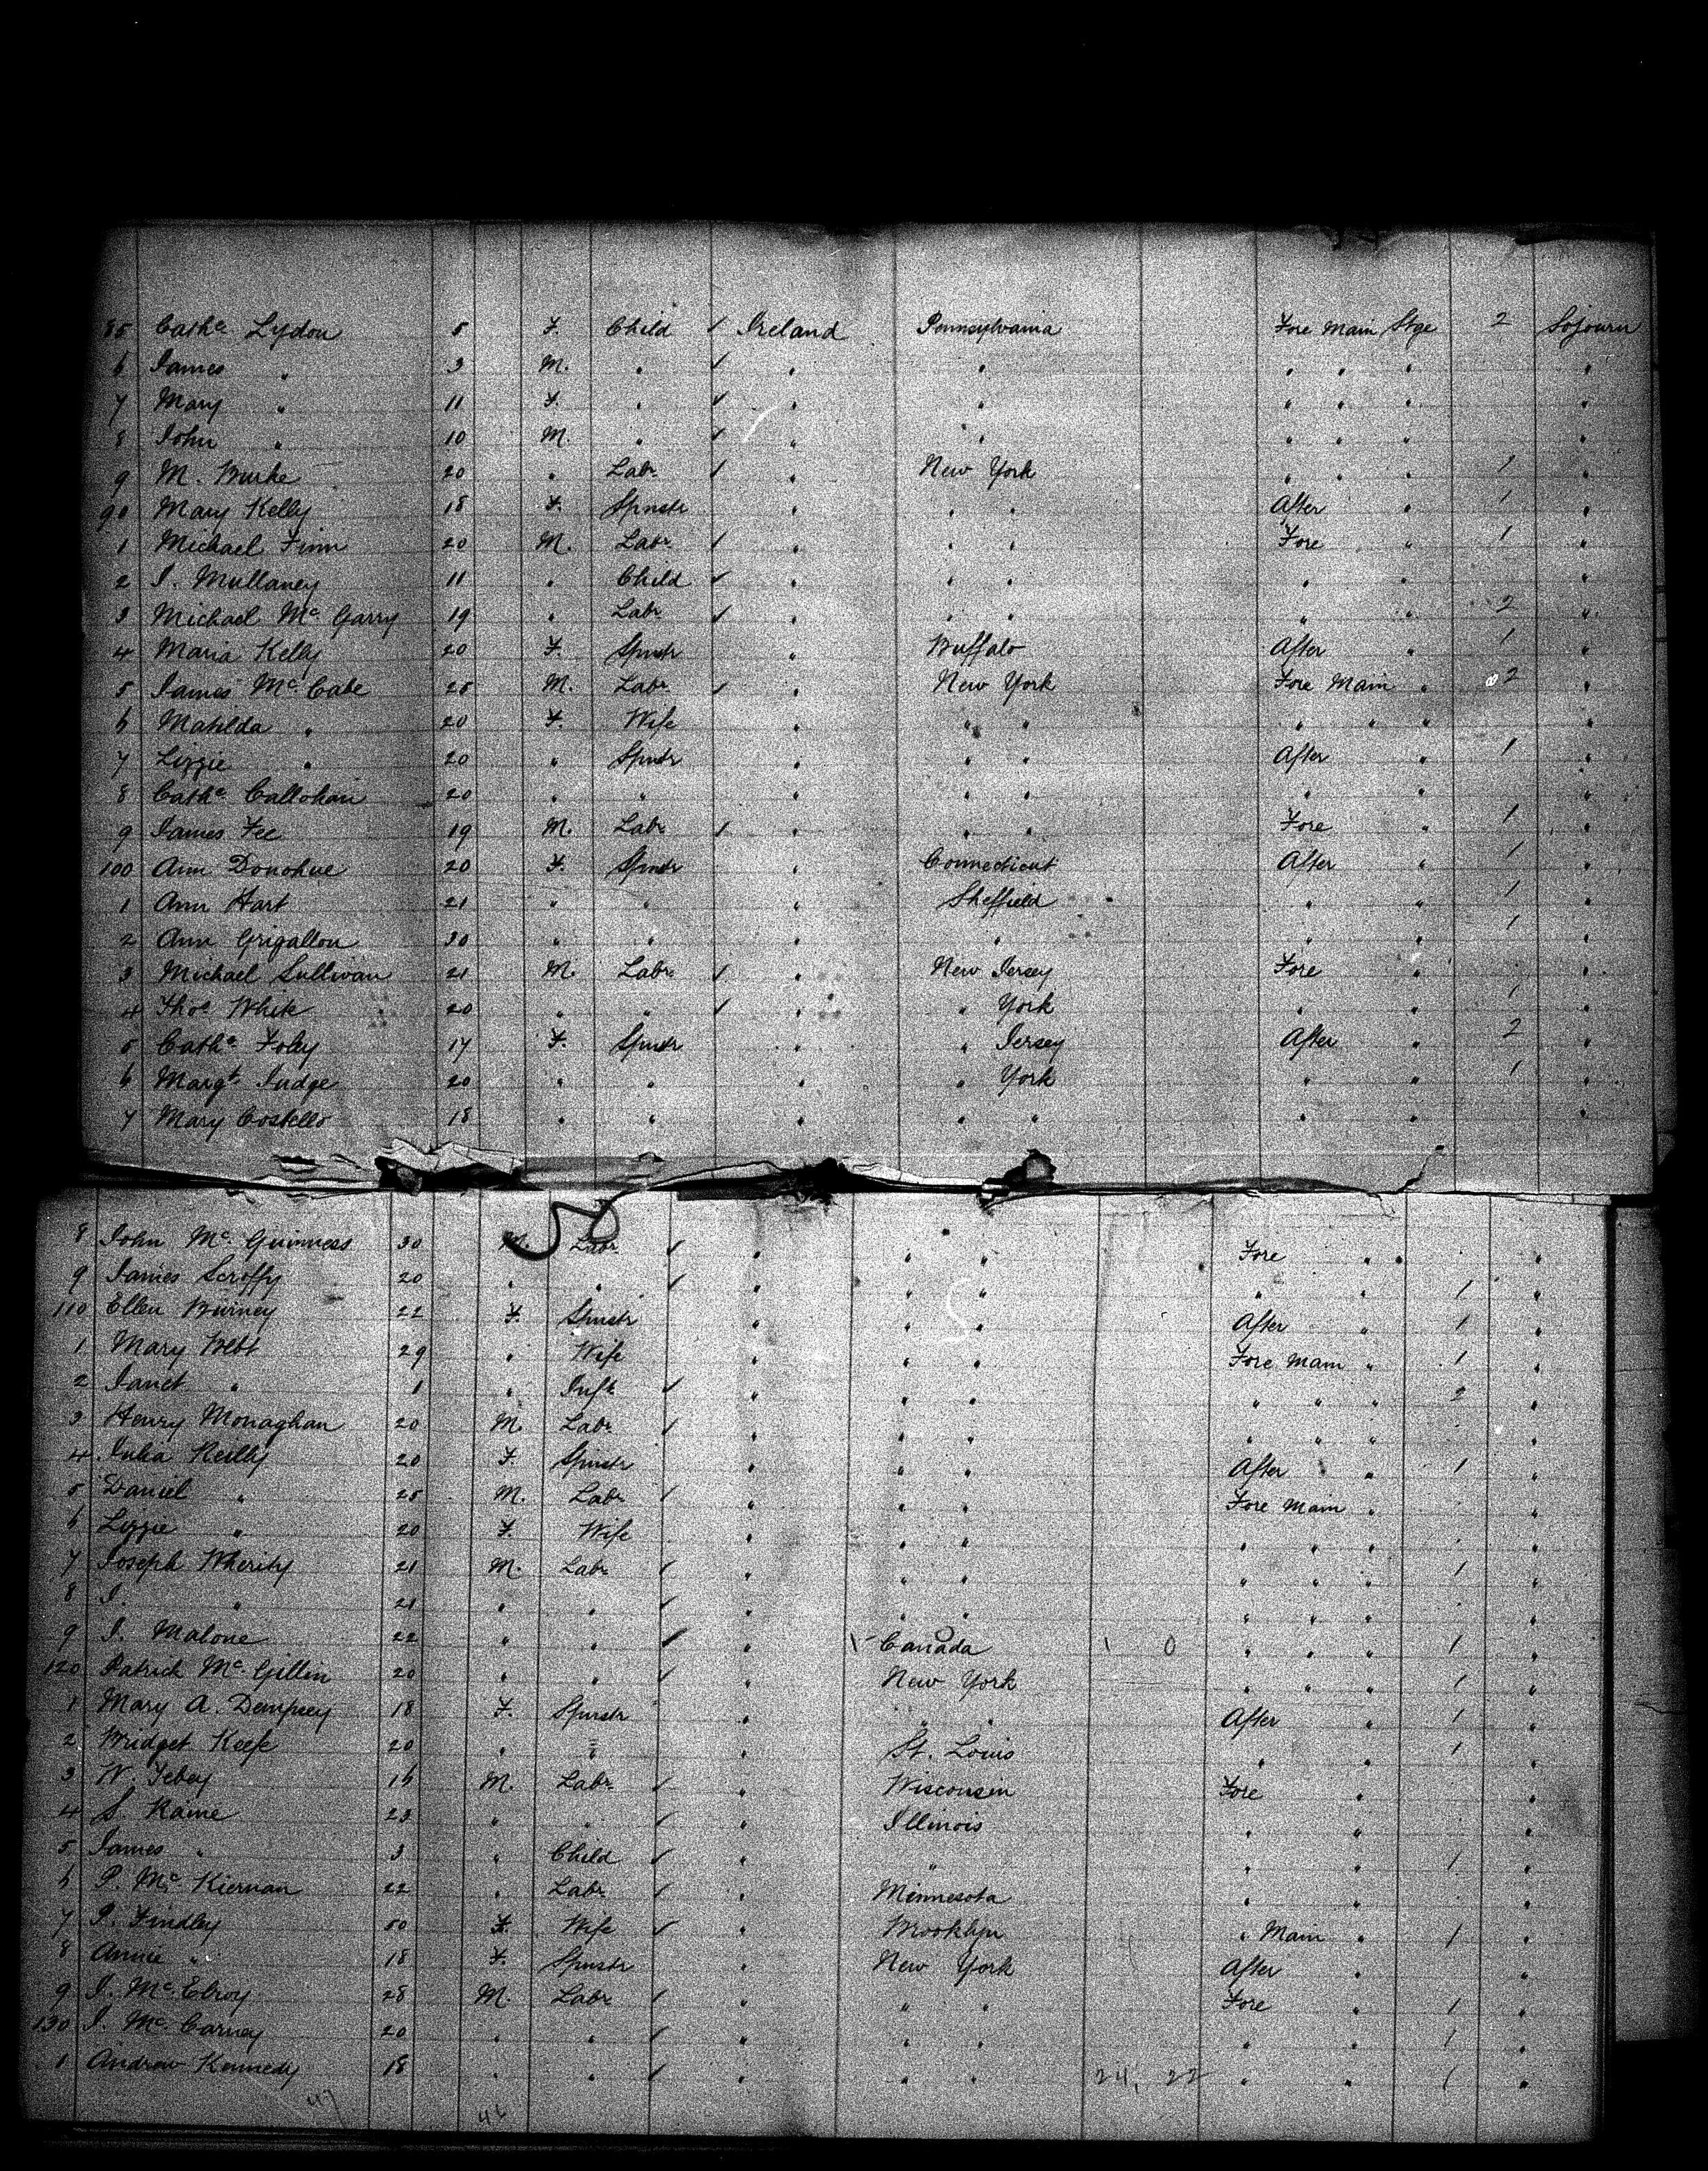 85 Cathe Lydon 5 F. Child ✓ Ireland Pennsylvania Fore Main Stge 2 Sojourn
6 James " 3 M. " ✓ " " " " " "
7 Mary " 11 F. " ✓ " " " " " "
8 John " 10 M. " ✓ " " " " " "
9 M. Burke 20 " Labr ✓ " New York " " " 1 "
90 Mary Kelly 18 F. Spnstr " " " After " 1 "
1 Michael Finn 20 M. Labr ✓ " " " Fore " 1 "
2 J. Mullaney 11 " Child ✓ " " " " " "
3 Michael Mc Garry 19 " Labr ✓ " " " " " 2 "
4 Maria Kelly 20 F. Spnstr " Buffalo After " 1 "
5 James Mc Cabe 25 M. Labr ✓ " New York Fore Main " 2 "
6 Matilda " 20 F. Wife " " " " " " "
7 Lizzie " 20 " Spnstr " " " After " 1 "
8 Cathe Callohan 20 " " " " " " " "
9 James Fee 19 M. Labr ✓ " " " Fore " 1 "
100 Ann Donohue 20 F. Spnstr " Connecticut After " 1 "
1 Ann Hart 21 " " " Sheffield " " 1 "
2 Ann Grigallon 30 " " " " " " 1 "
3 Michael Sullivan 21 M. Labr ✓ " New Jersey Fore " "
4 Thos White 20 " " ✓ " " York 1 "
5 Cathe Foley 17 F. Spnstr " " Jersey After " 2 "
6 Margt Judge 20 " " " " York " " 1 "
7 Mary Costello 18 " " " " " " " "
8 John Mc Guinness 30 M. Labr ✓ " " " Fore " "
9 James Scroffy 20 " " ✓ " " " " " 1 "
110 Ellen Burney 22 F. Spnstr " " " After " 1 "
1 Mary Webt 29 " Wife " " " Fore Main " 1 "
2 Janet " 1 " Inft ✓ " " " " " " 2 "
3 Henry Monaghan 20 M. Labr ✓ " " " " " " "
4 Julia Reilly 20 F. Spnstr " " " After " 1 "
5 Daniel " 25 M. Labr ✓ " " " Fore Main " "
6 Lizzie " 20 F. Wife " " " " " " "
7 Joseph Wherity 21 M. Labr ✓ " " " " " " 1 "
8 J. " 21 " " ✓ " " " " " " "
9 J. Malone 22 " " ✓ " Canada 1 0 " " " 1 "
120 Patrick Mc Gillin 20 " " ✓ " New York " " " 1 "
1 Mary A. Dempsey 18 F. Spnstr " " " After " 1 "
2 Bridget Keefe 20 " " " St. Louis " " 1 "
3 W. Tebey 16 M. Labr ✓ " Wisconsin Fore " "
4 S. Kaine 23 " " ✓ " Illinois " " "
5 James " 3 " Child ✓ " " " " 1 "
6 P. Mc Kiernan 22 " Labr ✓ " Minnesota " " "
7 P. Findley 50 F. Wife ✓ " Brooklyn " Main " 1 "
8 Annie " 18 F. Spnstr " New York After " "
9 J. Mc Elroy 28 M. Labr ✓ " " " Fore " 1 "
130 J. Mc Carney 20 " " ✓ " " " " " 1 "
1 Andrew Kennedy 18 " " ✓ " " " 24, 22 " " 1 "
47 46